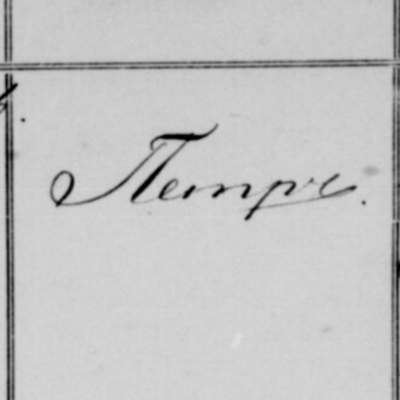 Петръ.